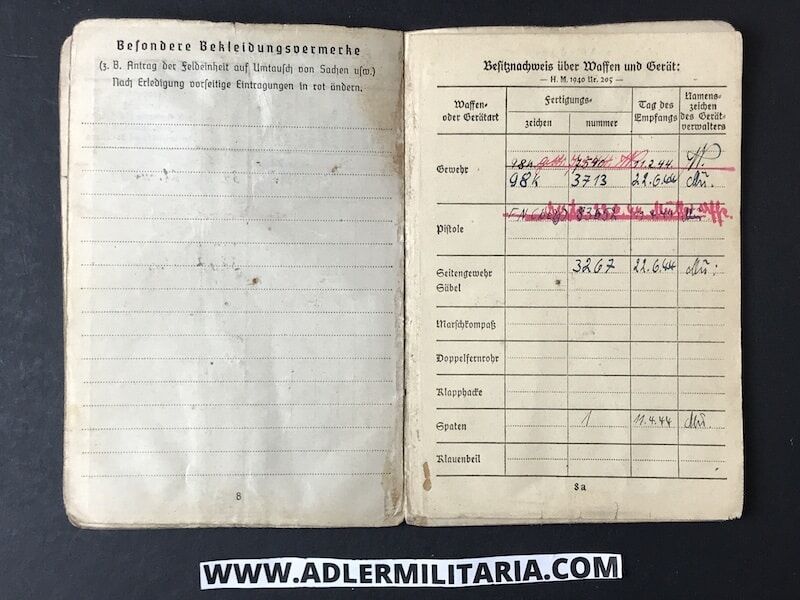 Besondere Bekleidungsvermerke
(z. B. Antrag der Feldeinheit auf Umtausch von Sachen usw.)
Nach Erledigung vorseitige Eintragungen in rot ändern.
8
Besitznachweis über Waffen und Gerät:
— H. M. 1940 Nr. 205 —
Waffen- oder Geräteart
Fertigungs-
zeichen
nummer
Tag des Empfangs
Namens- zeichen des Gerät- verwalters
Gewehr
98k 11.2.44
98k 3713 22.6.44 Mü.
Pistole
Seitengewehr 3267 22.6.44 Mü.
Säbel
Marschkompaß
Doppelfernrohr
Klapphacke
Spaten 1 11.4.44 Mü
Klauenbeil
8a
WWW.ADLERMILITARIA.COM